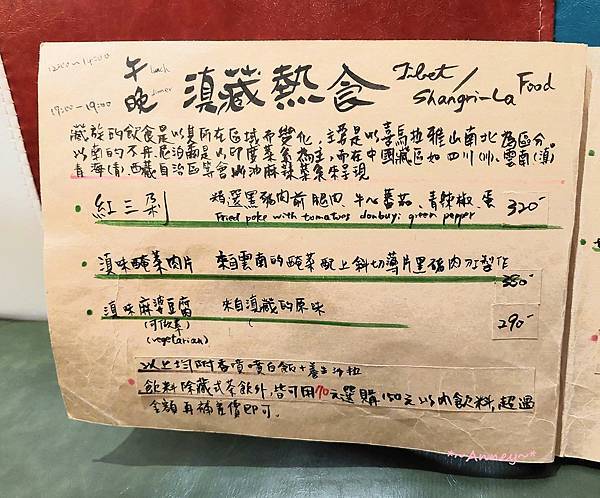 12:00~14:00 午 Lunch
17:00-19:00 晚 dinner
滇藏熱食 Tibet/
Shangri-La Food
藏族的飲食是以其所在區域而變化，主要是以喜馬拉雅山南北為區分。
以南的不丹、尼泊爾是以印度菜系為主，而在中國藏區如四川(川)、雲南(滇)
青海(青)、西藏自治區等會以油麻辣菜系呈現
• 紅三剁 精選黑豬肉前腿肉、牛心蕃茄、青辣椒、蛋 320-
Fried poke with tomatoes donbuyi green pepper
• 滇味醃菜肉片 來自雲南的醃菜配上斜切薄片黑豬肉力製作 350-
• 滇味麻婆豆腐 來自滇藏的原味 290-
(可做素)
(vegetarian)
以上均附香噴噴白飯+養生沙拉
飲料除藏式茶飲外，皆可用70元選購150元以內飲料，超過
金額再補差價即可.
*~Annley~*